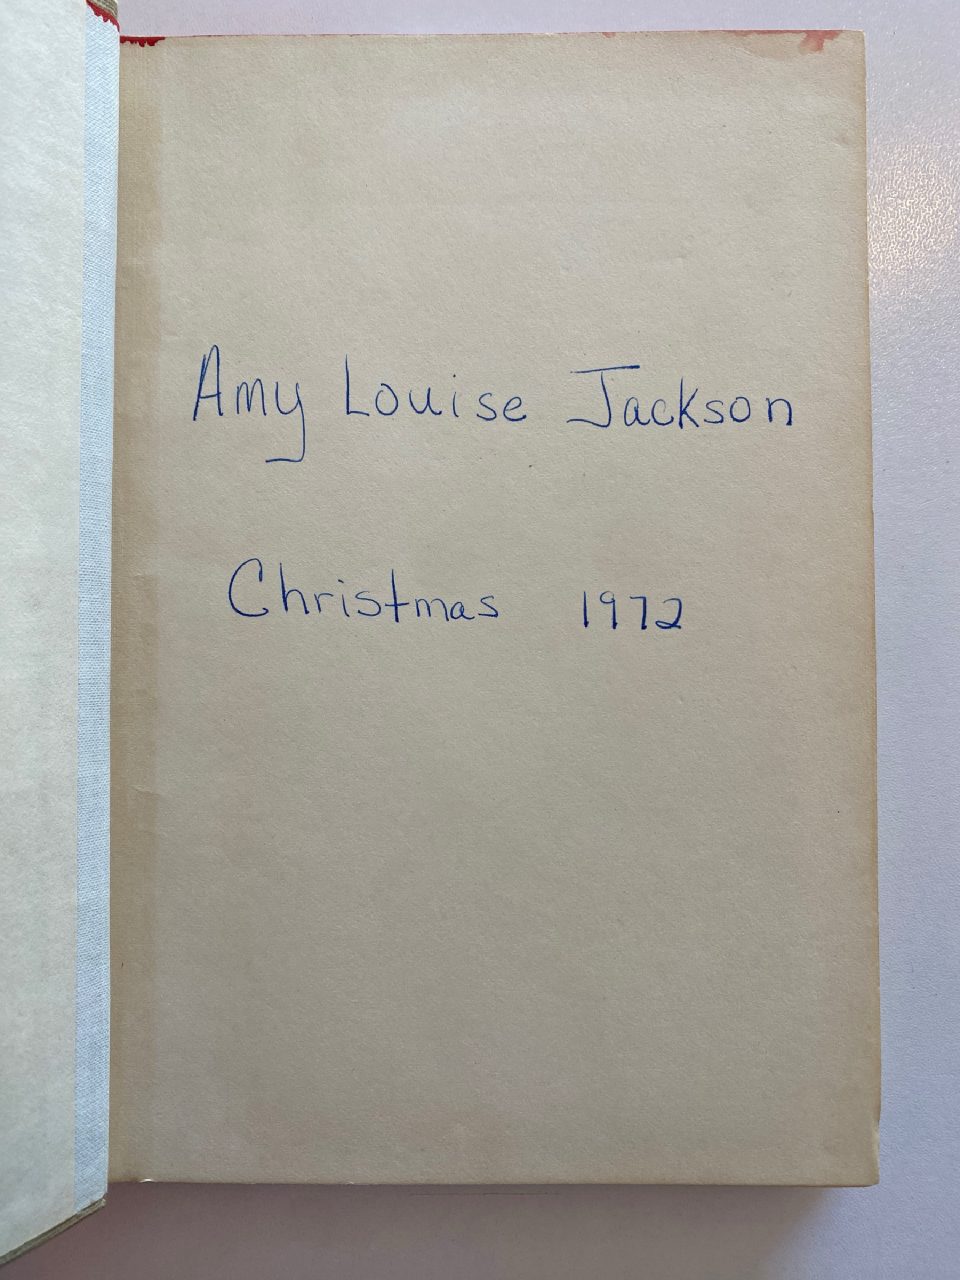 Amy Louise Jackson
Christmas 1972